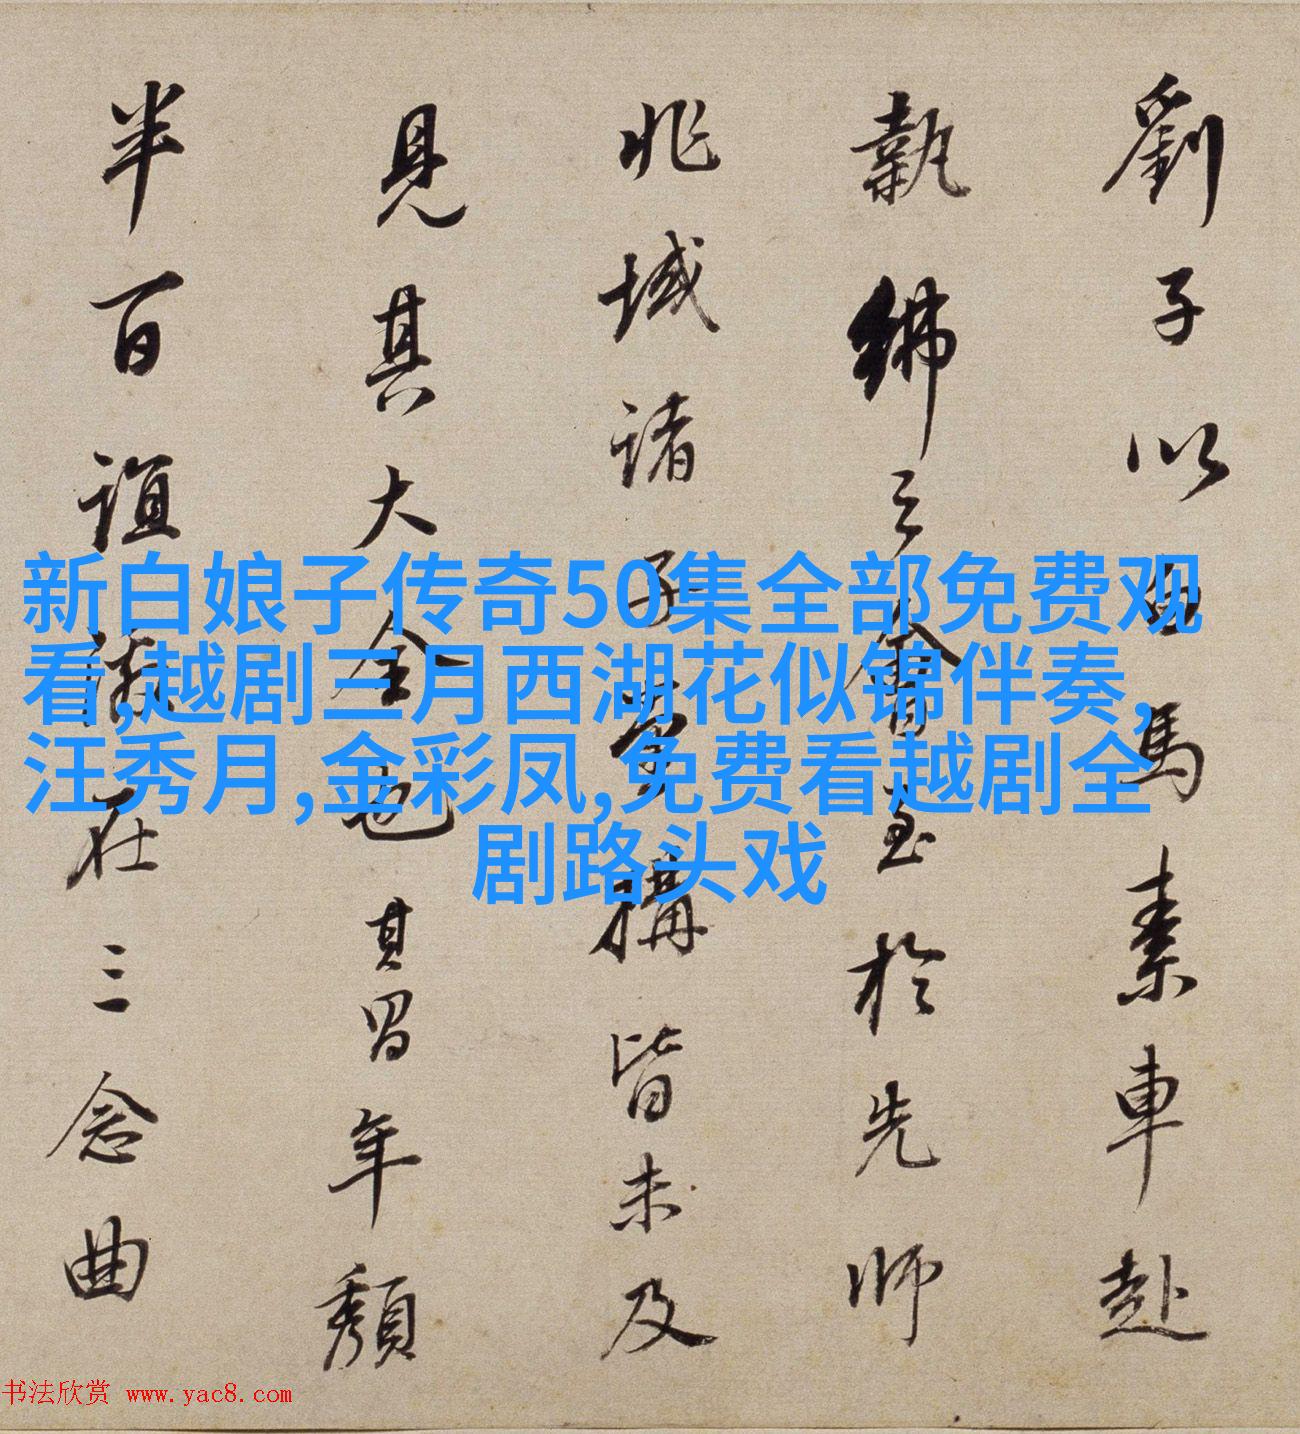 劉子以白馬素車赴
執紼之會至於先師
兆域諸子構皆未及
見其大全也其昌年頹
半百誼在三念曲
新白娘子传奇50集全部免费观
看,越剧三月西湖花似锦伴奏,
汪秀月,金彩凤,免费看越剧全
剧路头戏
书法欣赏 www.yac8.com